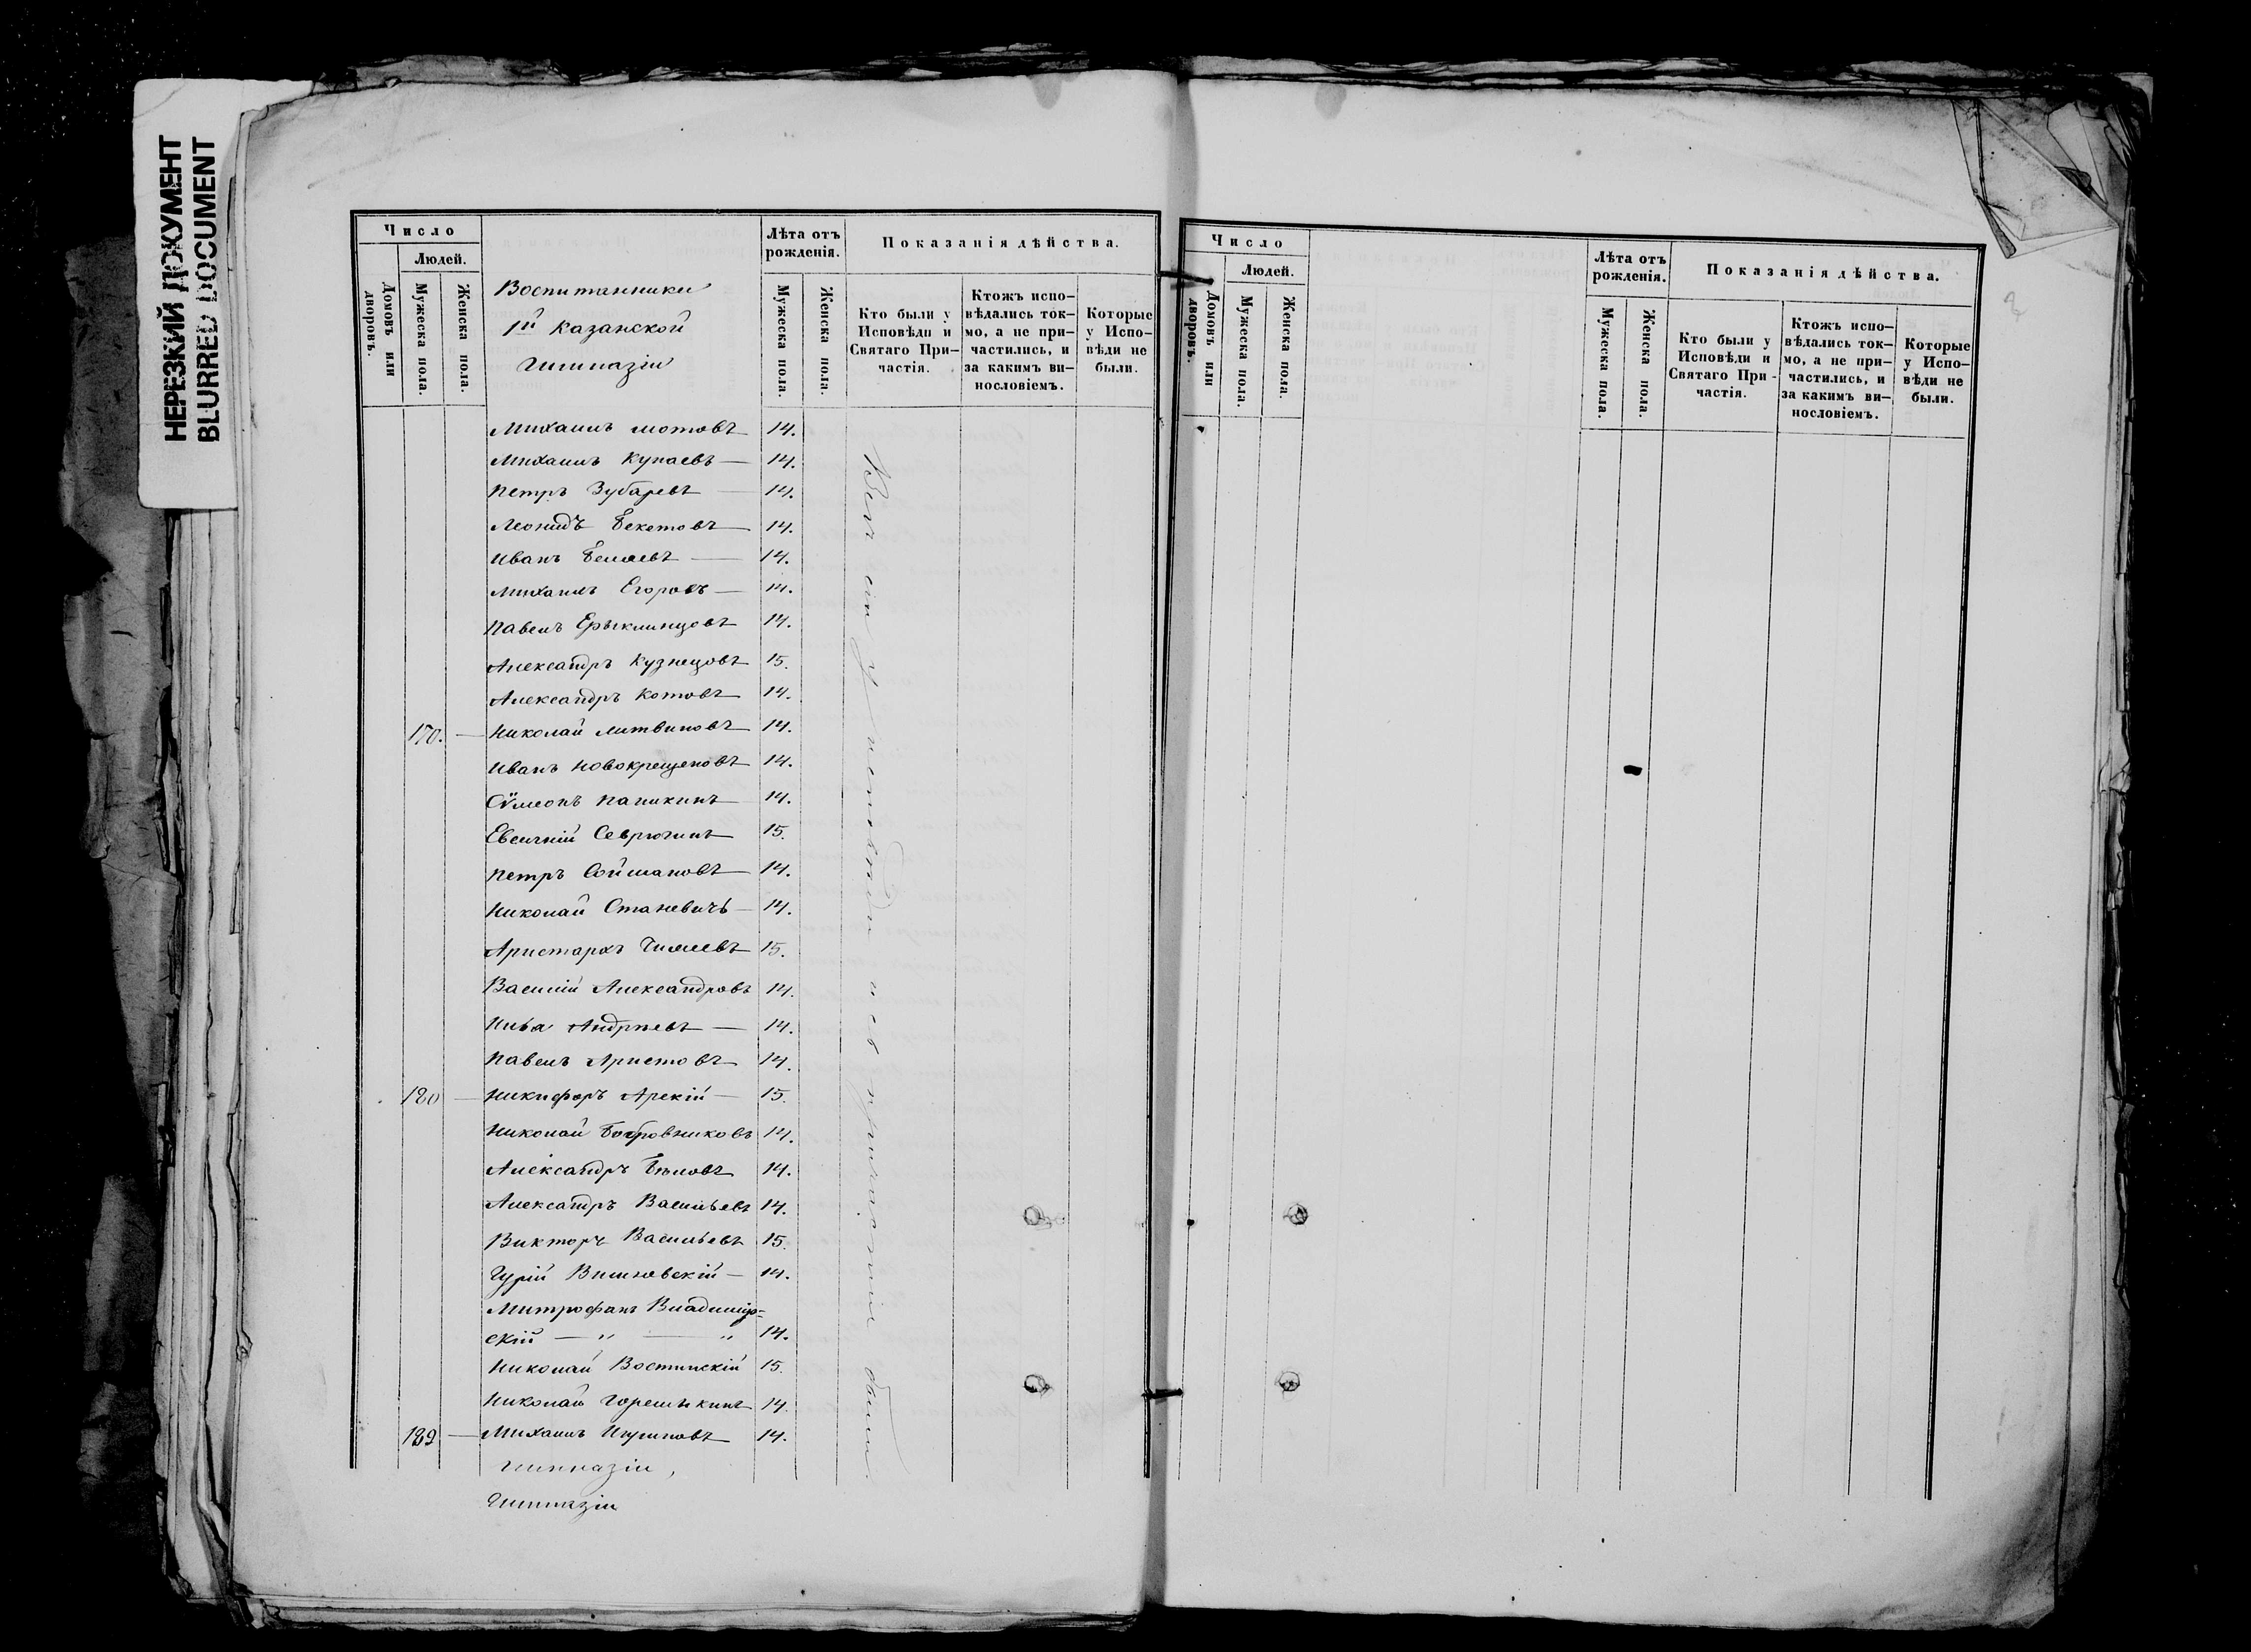 НЕРЕЗКИЙ ДОКУМЕНТ
BLURRED DOCUMENT
Число
Людей.
Домовъ или дворовъ.
Мужеска пола.
Женска пола.
Воспитанники
1й Казанской
Гимназіи
Лѣта отъ рожденія.
Мужеска пола.
Женска пола.
Показанія дѣйства.
Кто были у Исповѣди и Святаго При-частія.
Ктожъ испо-вѣдались ток-мо, а не при-частились, и за какимъ ви-нословіемъ.
Которые у Испо-вѣди не были.
Михаилъ 14.
Михаилъ Купаевъ — 14.
Петръ Зубаревъ — 14.
Леонидъ Бекетовъ — 14.
Иванъ Беляевъ — 14.
Михаилъ Егоровъ — 14.
Павелъ Ерыклинцовъ 14.
Александръ Кузнецовъ 15.
Александръ Котовъ 14.
170. — Николай Литвиновъ 14.
Иванъ Новокрещеновъ 14.
Сѵмеонъ Папикинъ 14.
Евгеній Севрюгинъ 15.
Петръ Соймановъ 14.
Николай Станевичъ — 14.
Аристархъ 15.
Василій Александровъ 14.
Илья Андреевъ — 14.
Павелъ Аристовъ 14.
180 — Никифоръ Арскій — 15.
Николай Бобровниковъ 14.
Александръ Бѣловъ 14.
Александръ Васильевъ 14.
Викторъ Васильевъ 15.
Гурій Вишневскій — 14.
Митрофанъ Владимір=
скій — " — " 14.
Николай 15.
Николай Горешкинъ 14.
189 — Михаилъ 14.
Гимназіи,
Гимназіи
Всѣ сіи у исповѣди и св. причастія были.
Число
Людей.
Домовъ или дворовъ.
Мужеска пола.
Женска пола.
Лѣта отъ рожденія.
Мужеска пола.
Женска пола.
Показанія дѣйства.
Кто были у Исповѣди и Святаго При-частія.
Ктожъ испо-вѣдались ток-мо, а не при-частились, и за какимъ ви-нословіемъ.
Которые у Испо-вѣди не были.